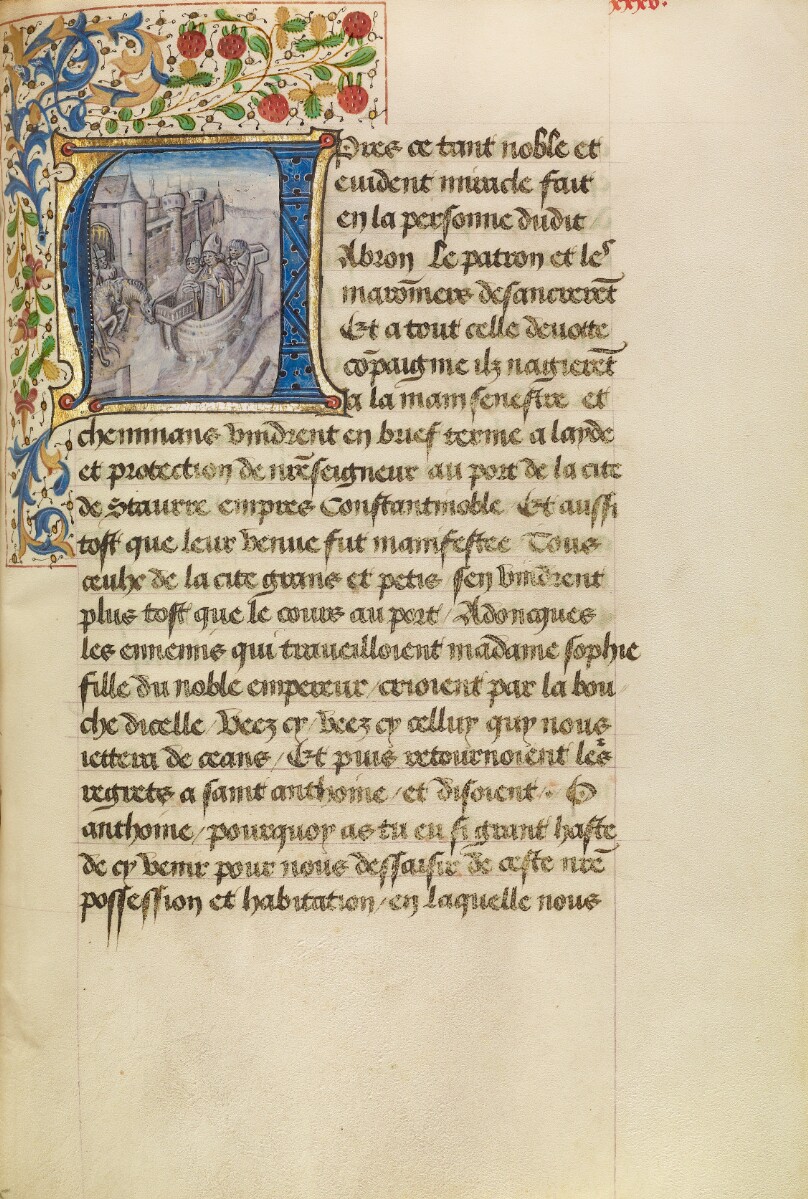 xxxv.
Apres ce tant noble et
euident miracle fait
en la personne dudit
Abron Le patron et les
maronīers desancrerēt
Et a tout celle deuotte
cōpaignie ilz nagierēt
a la main senestre et
cheminans vindrent en brief terme a layde
et protection de nrē seigneur au port de la cite
de Staurre empres Constantinoble Et aussi
tost que leur venue fut manifestee Tous
ceulx de la cite grans et petis sen vindrent
plus tost que le cours au port / Adoncques
les ennemis qui traueilloient madame sophie
fille du noble empereur / crioient par la bou
che dicelle / Veez cy / veez cy celluy quy nous
iettera de ceans / Et puis retournoient les
regretz a saint anthoine / et disoient / O
anthoine / pourquoy as tu eu si grant haste
de cy venir pour nous dessaisir de ceste nrē
possession et habitation / en laquelle nous